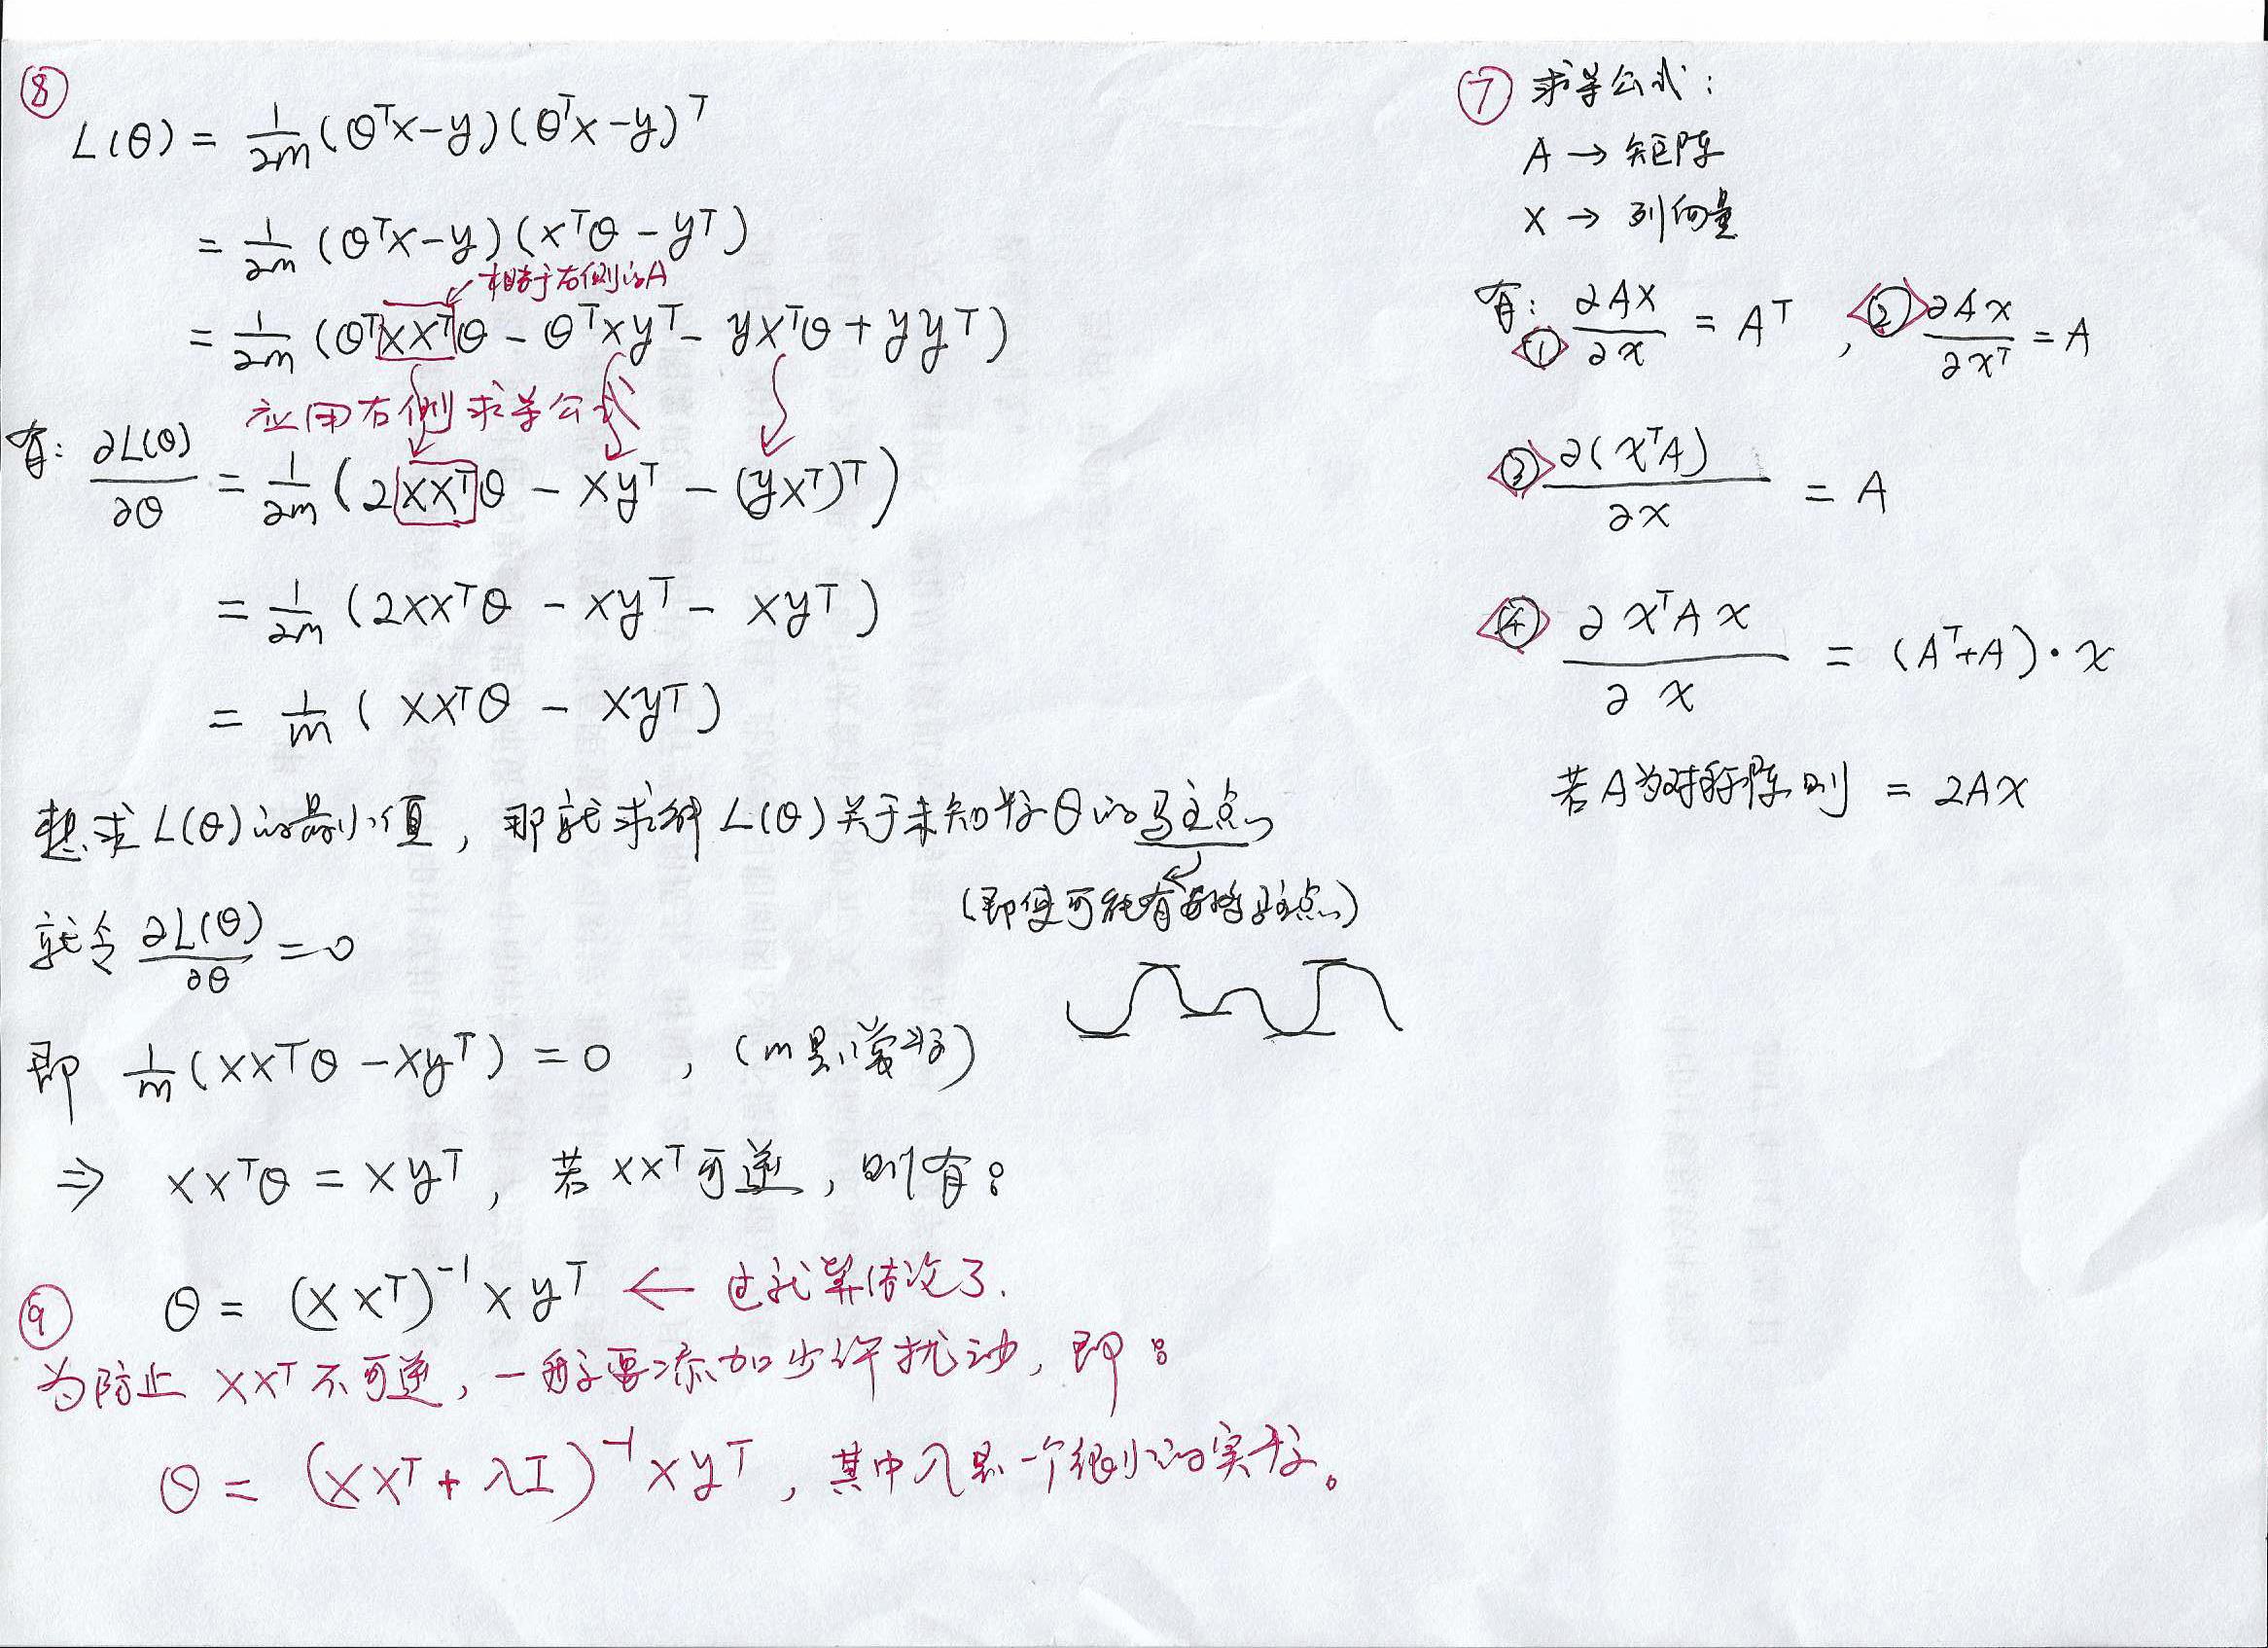 ⑧
L(θ) = 1/2m (θᵀx-y)(θᵀx-y)ᵀ
= 1/2m (θᵀx-y)(xᵀθ-yᵀ)
相当于右侧的A
= 1/2m (θᵀxxᵀθ - θᵀxyᵀ - yxᵀθ + yyᵀ)
应用右侧求导公式
有: ∂L(θ)/∂θ = 1/2m (2xxᵀθ - xyᵀ - (yxᵀ)ᵀ)
= 1/2m (2xxᵀθ - xyᵀ - xyᵀ)
= 1/m (xxᵀθ - xyᵀ)
想求L(θ)的最小值, 那就求解L(θ)关于未知数θ的驻点
(即使可能有多个驻点)
就令 ∂L(θ)/∂θ = 0
即 1/m (xxᵀθ - xyᵀ) = 0 , (m是常数)
⇒ xxᵀθ = xyᵀ, 若xxᵀ可逆, 则有:
⑨
θ = (xxᵀ)⁻¹xyᵀ ← 这就算结论了.
为防止 xxᵀ 不可逆, 一般要添加少许扰动, 即:
θ = (xxᵀ + λI)⁻¹xyᵀ, 其中λ是一个很小的实数。
⑦ 求导公式:
A → 矩阵
X → 列向量
有: ① ∂AX/∂x = Aᵀ , ② ∂Ax/∂xᵀ = A
③ ∂(xᵀA)/∂x = A
④ ∂xᵀAx/∂x = (Aᵀ+A)·x
若A为对称阵则 = 2Ax